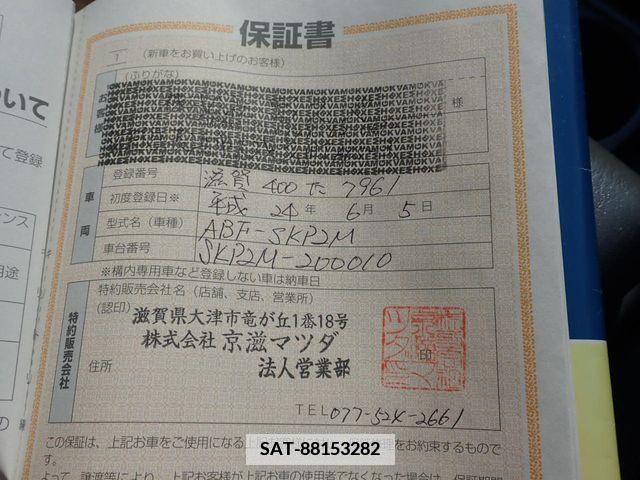 保証書
1
(新車をお買い上げのお客様)
(ふりがな)
お客様
様
車両
登録番号 滋賀 400 た 7961
初度登録日※ 平成 24年 6月 5日
型式名(車種) ABF-SKP2M
車台番号 SKP2M-200010
※構内専用車など登録しない車は納車日
特約販売会社
特約販売会社名(店舗、支店、営業所)
(認印)
滋賀県大津市竜が丘1番18号
株式会社 京滋マツダ
法人営業部
印
住所
TEL 077-524-2661
この保証は、上記お車をご使用になる
をお約束するもので
す。
よって、譲渡等により、上記お客様が上記お車の使用者でなくなった場合は、保証期間
ついて
て登録
用途
SAT-88153282